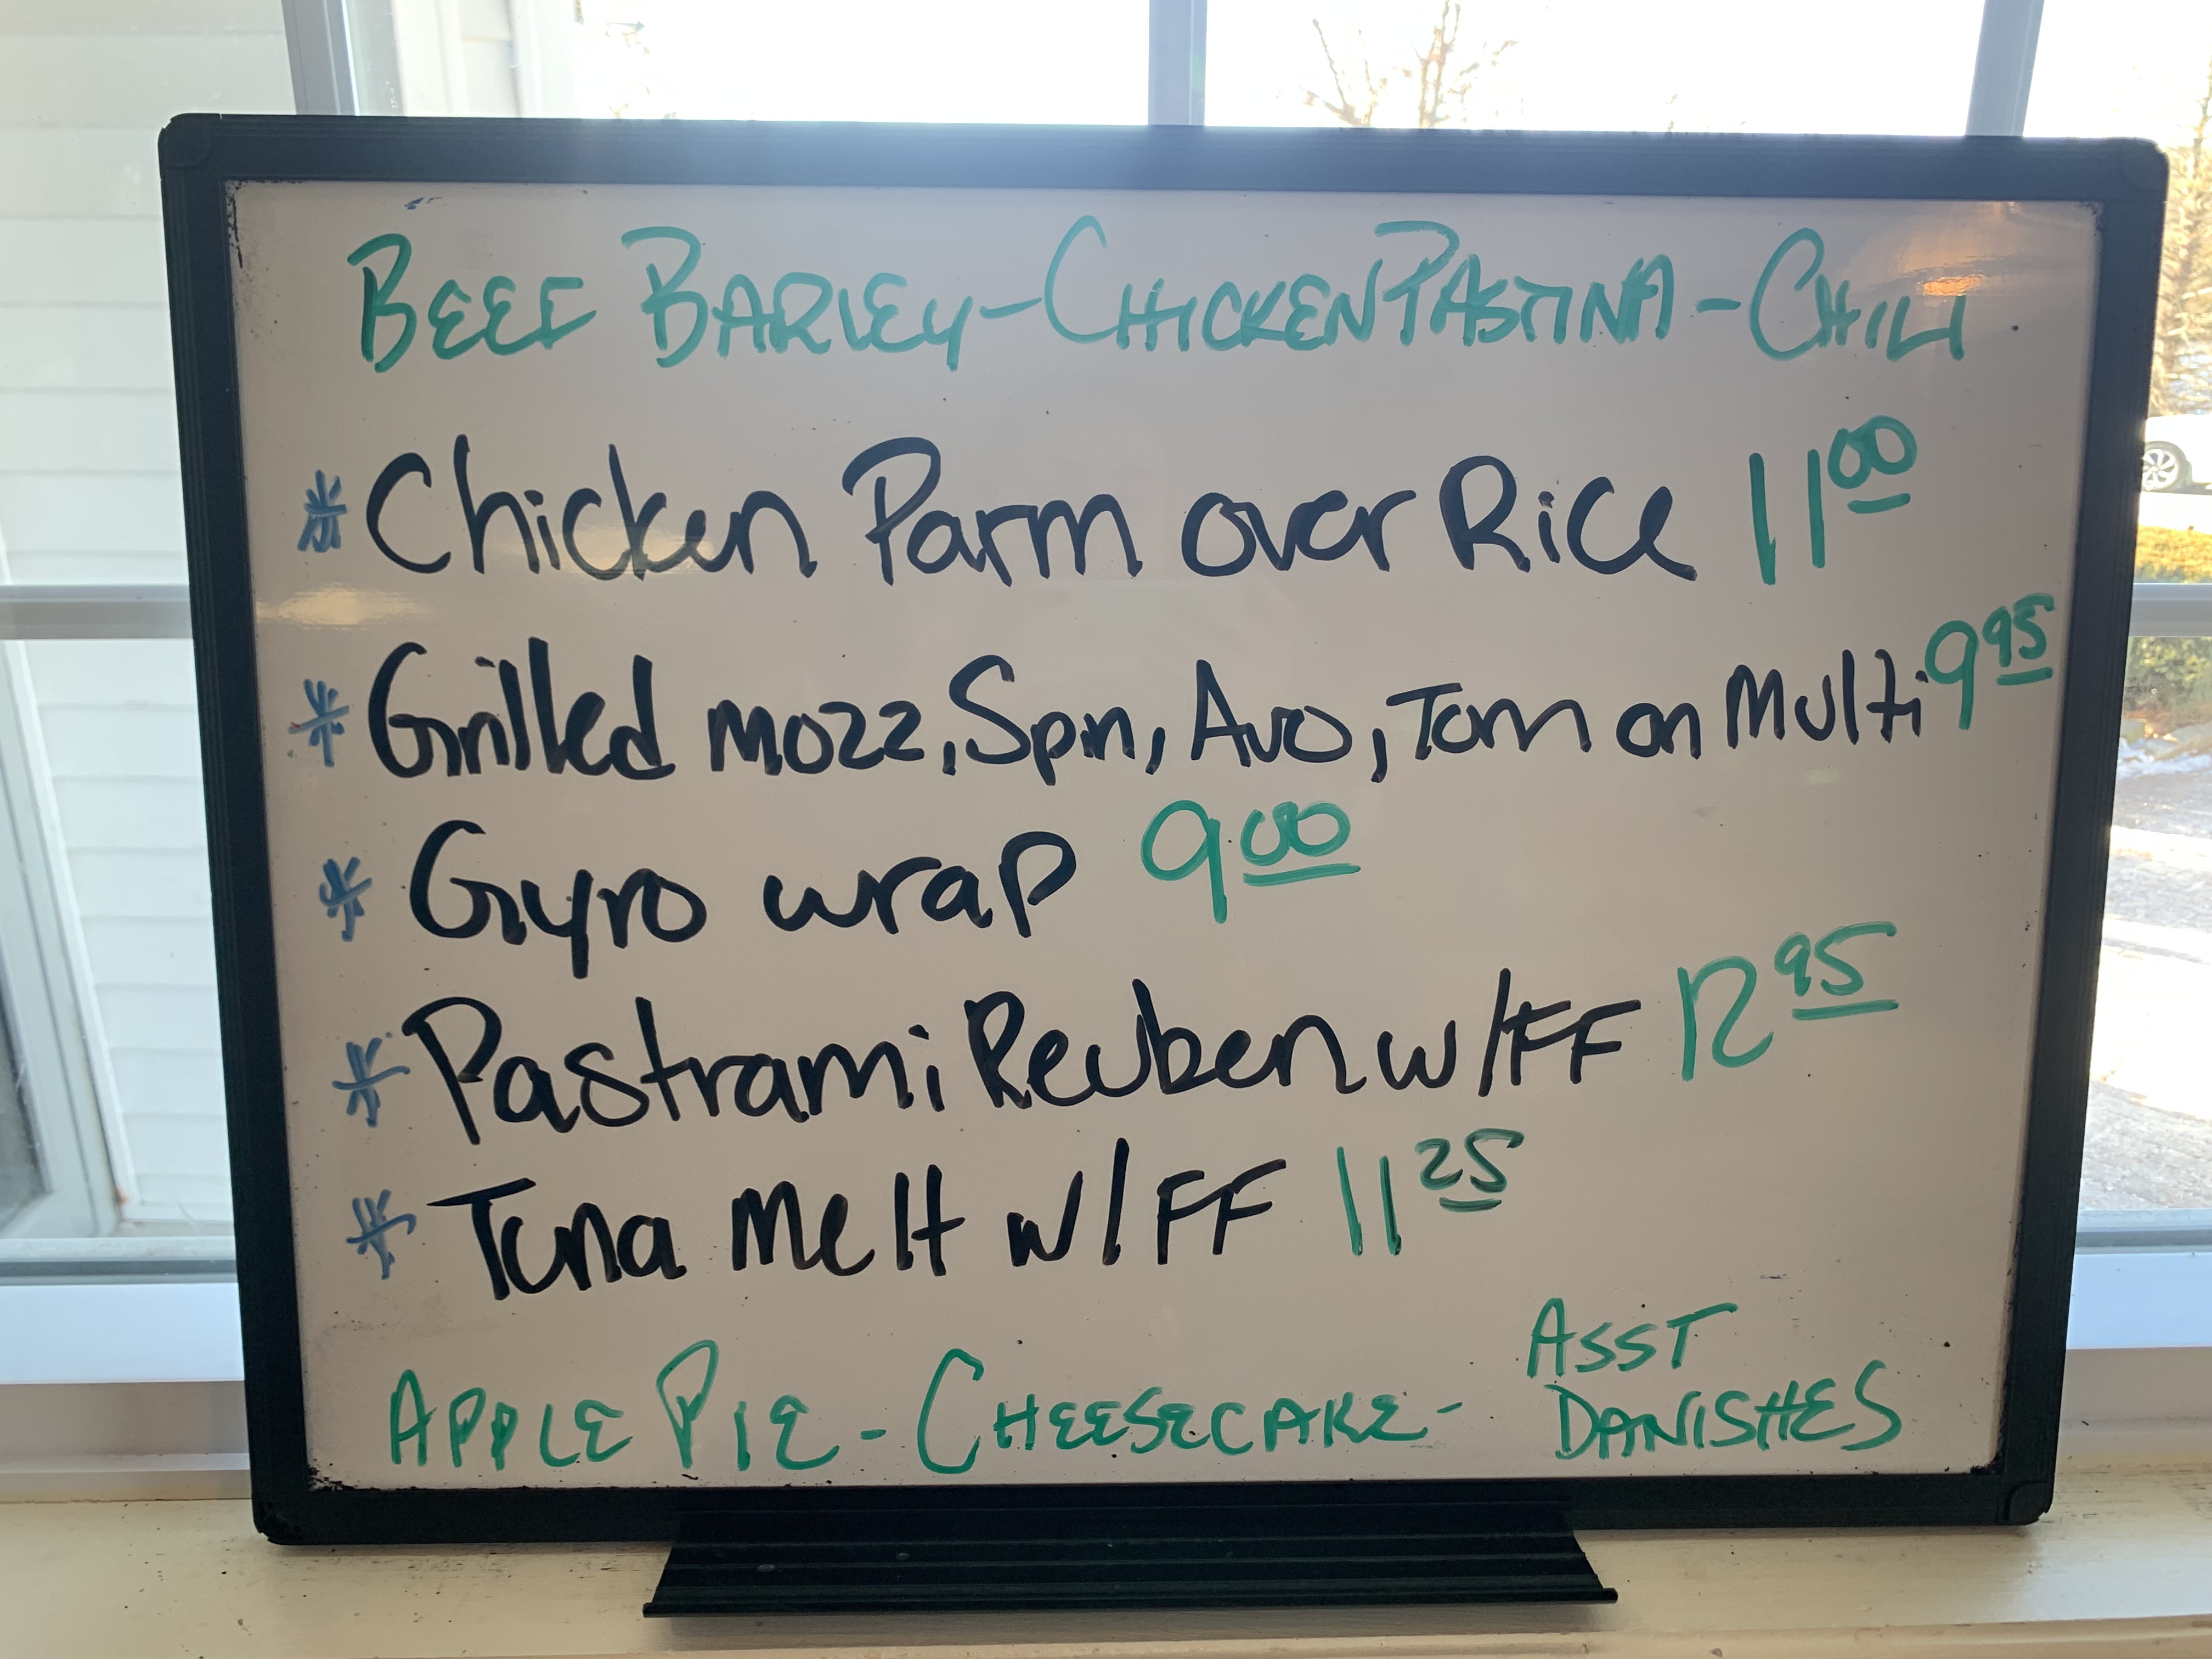 BEEF BARLEY - CHICKEN PASTINA - CHILI
* Chicken Parm over Rice 11 00
* Grilled Mozz, Spin, Avo, Tom on Multi 9 95
* Gyro wrap 9 00
* Pastrami Reuben w/FF 12 95
* Tuna Melt w/FF 11 25
APPLE PIE - CHEESECAKE - ASST DANISHES